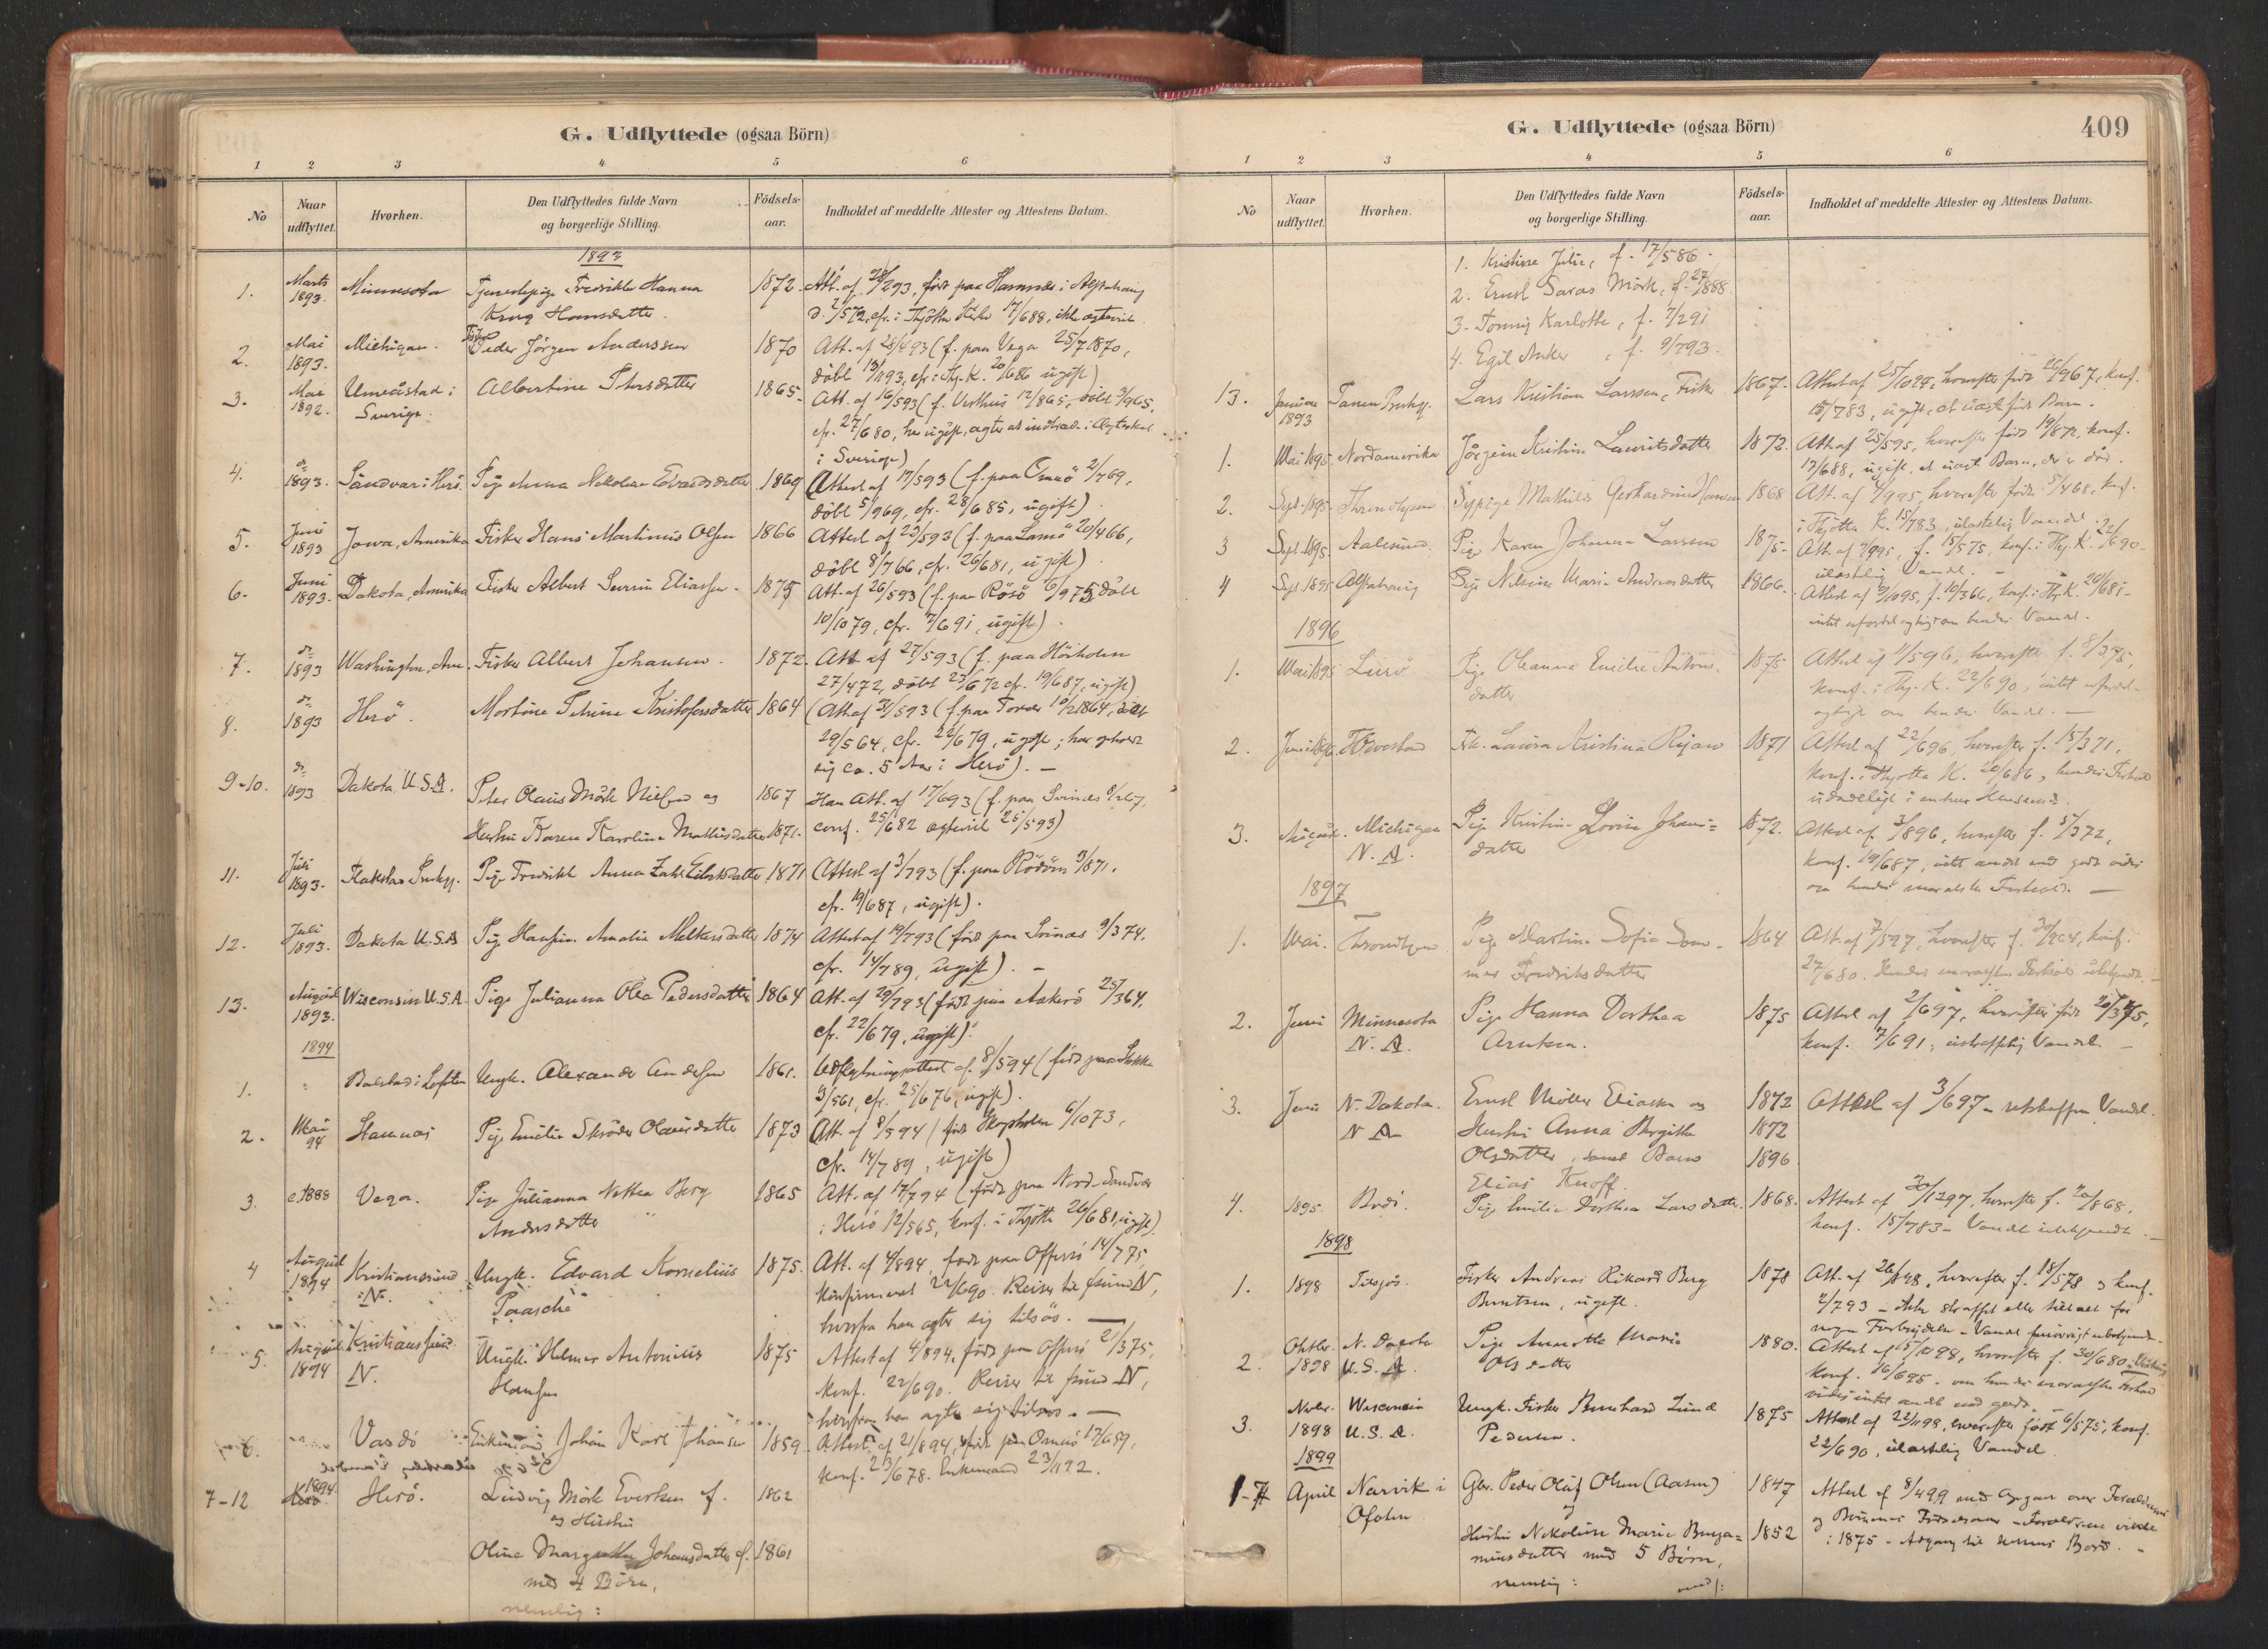 G. Udflyttede (ogsaa Börn)
1 2 3 4 5 6
No
Naar udflyttet.
Hvorhen.
Den Udflyttedes fulde Navn og borgerlige Stilling.
Födselsaar.
Indholdet af meddelte Attester og Attestens Datum.
1893
1. Marts 1893. Minnesota Tjenestepige Fredrikke Hanna 1872. Att. af 28/293, født paa
Krug Hansdatter. 17/688,
2. Mai 1893. Michigan. Fisker Peder Jörgen Anderssen 1870 Att. af 28/493 (f. paa Vega 25/7 1870,
döbt cfr. i Thj. K. 20/686 ugift)
3. Mai 1892. Umeåstad i Sverige. Albertine Petersdatter 1865. Att. af 16/593 (f. 12/865, döbt 3/965,
cfr. 27/680, her ugift, agter at indtræde i Ægteskab
i Sverige)
4. do 1893. Sandvær i Herö. Pige Anna Nekoline Edvardsdatter 1869 Attest af 17/593 (f. paa 2/769,
döbt 5/969, cfr. 28/685, ugift)
5. Juni 1893 Jowa, Amerika Fisker Hans Martinus Olsen 1866 Attest af 23/593 (f. paa 20/466,
döbt 8/766, cfr. 26/681, ugift)
6. Juni 1893. Dakota, Amerika Fisker Albert Severin Eliassen. 1875 Att. af 26/593 (f. paa Rösö döbt
10/1079, cfr. 7/691, ugift).
7. do 1893 Washington, Am. Fisker Albert Johansen. 1872. Att. af 27/593 (f. paa
27/472, döbt 23/672 cfr. 19/687, ugift)
8. do 1893 Herö. Martine Petrine Kristofersdatter 1864 (Att. af 31/593 (f. paa 10/2 1864, döbt
29/564, cfr. 22/679, ugift; har opholdt
sig ca. 5 Aar i Herö). —
9-10. do 1893 Dakota U.S.A. Peter Olaus Mörk Nielsen og 1867 Han Att. af 17/693 (f. paa Svinæs 8/267,
Hustru Karen Karoline Mathisdatter 1871. conf. 25/682 ægteviet 25/593)
11. Juli 1893. Pige Fredrikke Anna Eilertsdatter 1871 Attest af 3/793 (f. paa Rödöen 9/871,
cfr. 19/687, ugift).
12. Juli 1893. Dakota U.S.A Pige Hansine Amalie Melkersdatter 1874 Attest af 19/793 (født paa Svinæs 9/374,
cfr. 14/789, ugift). —
13. August 1893. Wisconsin U.S.A. Pige Julianna Olea Pedersdatter 1864 Att. af 29/793 (født paa Aakerö 25/364,
cfr. 22/679, ugift).
1894
1. " Balstad i Lofoten Ungk. Alexander Andersen 1861. Udflytningsattest af 8/594 (født paa
9/561, cfr. 25/676, ugift).
2. Mai 94 Stamnæs Pige Emilie Skröder Olausdatter 1873 Att. af 8/594 (født 6/1073,
cfr. 14/789, ugift)
3. 1888 Vega. Pige Julianna Berg 1865 Att. af 17/794 (født paa Nord-Sandvær
Andersdatter i Herö 12/565, konf. i Thjötta 26/681, ugift).
4 August 1894 Kristianssund N. Ungk. Edvard Kornelius 1875. Att. af 4/894, født paa Offersö 14/775,
Paasche konfirmeret 22/690. Reiser til ssund N,
hvorfra han agter sig tilsös. —
5. August 1894 Kristianssund N. Ungk. Helmer Antonius 1875 Attest af 4/894, født paa Offersö 21/375,
Hansen konf. 22/690. Reiser til ssund N,
hvorfra han agter sig tilsös. —
6. Vardö Enkemand Johan Karl Johansen 1859 Attest af 21/894, født paa 17/659,
konf. 23/678. Enkemand 23/1192.
7-12 1894. Herö. Ludvig Mörk Evertsen f. 1862
og Hustru
Oline Margrethe Johansdatter f. 1861
med 4 Börn,
nemlig:
G. Udflyttede (ogsaa Börn) 409
1 2 3 4 5 6
No
Naar udflyttet.
Hvorhen.
Den Udflyttedes fulde Navn og borgerlige Stilling.
Födselsaar.
Indholdet af meddelte Attester og Attestens Datum.
1. Kristine Julie, f. 17/586.
2. Ernst Saras Mörk, f. 27/1888.
3. Tonny Karlotte, f. 7/291
4. Egil Anker, f. 9/793.
13. Januar 1893 Lars Kristian Larssen, Fisker 1867. Attest af hvorefter født 26/967, konf.
15/783, ugift, et uægte født Barn.
1. Mai 1895. Nordamerika Jörgine Kristine Lauritsdatter 1872. Att. af 25/595, hvorefter født 19/872, konf.
17/688, ugift, et uægte Barn, der er død.
2. Sept. 1895. Throndhjem Sypige Mathilde Gerhardine Hansen 1868 Att. af 4/995, hvorefter født 5/468, konf.
i Thjötta K. 15/783, ulastelig Vandel.
3 Sept. 1895 Aalesund. Pige Karen Johanna Larssen 1875. Att. af 4/995, f. 15/575, konf. i Thj. K. 22/690.
ulastelig Vandel. —
4 Sept. 1895 Alstahaug Pige Nilsine Marie Andreasdatter 1866. Attest af f. 10/366, konf. i Thj. K. 26/681.
intet ufordelagtigt om hendes Vandel.
1896
1. Mai 1895 Lurö Pige Oleanna Emilie Antonsdatter 1875 Attest af 9/596, hvorefter f. 8/375,
konf. i Thj. K. 22/690, intet ufordelagtigt
om hendes Vandel. —
2. Juni 1896. Frk. Laura Kristina Rijan 1871 Attest af 22/696, hvorefter f. 15/371,
konf. i Thjötta K. 20/686, hendes Forhold
udadeligt i enhver Henseende.
3. August. Michigan N.A. Pige Kristine Lovise Johansdatter 1872. Attest af 3/896, hvorefter f. 5/372,
konf. 19/687, intet andet end godt vides
om hendes moralske Forhold. —
1897
1. Mai. Throndhjem Pige Martine Sofie Sommer 1864 Att. af 7/597, hvorefter f. konf.
Fredriksdatter 27/680. Hendes moralske Forhold ubekjendt. —
2. Juni Minnesota N.A. Pige Hanna Dorthea 1875 Attest af 2/697, hvorefter født 20/375,
Arntsen. konf. 7/691, ustraffelig Vandel. —
3. Juni N. Dakota. N A Ernst Möller Eliassen og 1872 Attest af 3/697 — retskaffen Vandel.
Hustru Anna Birgitte 1872
Olsdatter, samt Barn 1896
Elias Knoff.
4. 1895. Bodö. Pige Emilie Dorthea Larsdatter. 1868. Attest af 30/1297, hvorefter f. 20/868,
konf. 15/783 — Vandel ubekjendt. —
1898
1. 1898 Tilsjös. Fisker Andreas Rikard Berg 1878 Att. af hvorefter f. 18/578 og konf.
Berntsen, ugift. 2/793 — ikke straffet eller tiltalt for
nogen Forbrydelse — Vandel forövrigt ubekjendt.
2. Oktbr. 1898 N. Dacota U.S.A. Pige Annette Marie 1880. Attest af hvorefter f. 30/680,
Olsdatter konf. 16/695. om hendes moralske Forhold
vides intet andet end godt. —
3. Novbr. 1898 Wisconsin U.S.A. Ungk. Fisker Bernhard Lund 1875 Attest af 22/1198, hvorefter født 6/575, konf.
Pedersen. 22/690, ulastelig Vandel.
1899
1-7 April Narvik i Ofoten Gbr. Peder Oluf Olsen (Aasen) 1847 Attest af 8/499 med Opgave over Forældrenes
og og Börnenes Födselsaar — Forældrene viede
Hustru Nekoline Marie Benja= 1852 i 1875 — Adgang til Herrens Bord. —
minsdatter med 5 Börn,
nemlig: